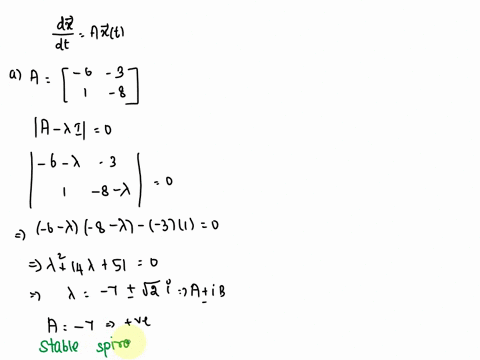 dx⃗/dt = Ax⃗(t)
a) A = [ -6 -3
1 -8 ]
|A - λI| = 0
| -6-λ -3
1 -8-λ | = 0
=) (-6-λ)(-8-λ) - (-3)(1) = 0
=) λ² + 14λ + 51 = 0
=) λ = -7 ± √2 i => A ± iB
A = -7 => +ve
Stable spiro